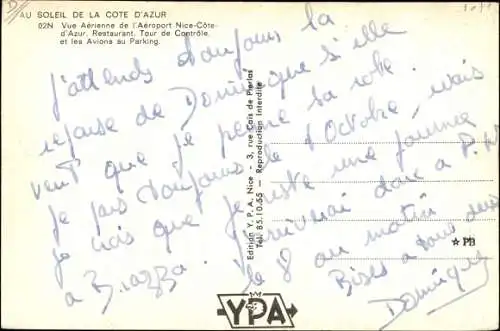 AU SOLEIL DE LA COTE D'AZUR
02N Vue Aérienne de l'Aéroport Nice-Côte-
d'Azur, Restaurant, Tour de Contrôle
et les Avions au Parking.
J'attends toujours la
réponse de Dominique si elle
veut que je prenne sa robe.
Je pars toujours le 7 Octobre, mais
je crois que je reste une journée
à Brazza. J'arriverai donc à P.
le 8 au matin
Bises à vous deux
Dominique
Edition Y.P.A. Nice - 3, rue Cais de Pierlas
Tél. 85.10.55 - Reproduction Interdite
★ PB
YPA